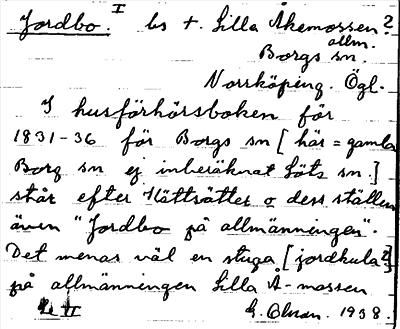 Jordbo. I ls t. Lilla Åkemossen?
allm.
Borgs sn.
Norrköping. Ögl.
I husförhörsboken för
1831-36 för Borgs sn [här = gamla
Borg sn ej inberäknat Löts sn.]
står efter Hättsätter o dess ställen
även "Jordbo på allmänningen".
Det menas väl en stuga [jordkula?]
på allmänningen Lilla Å-mossen
II G. Olsson. 1938.